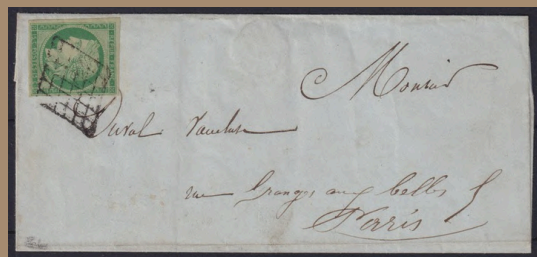 Monsieur
Duval Vaucluse
rue Grange aux belles 5
Paris